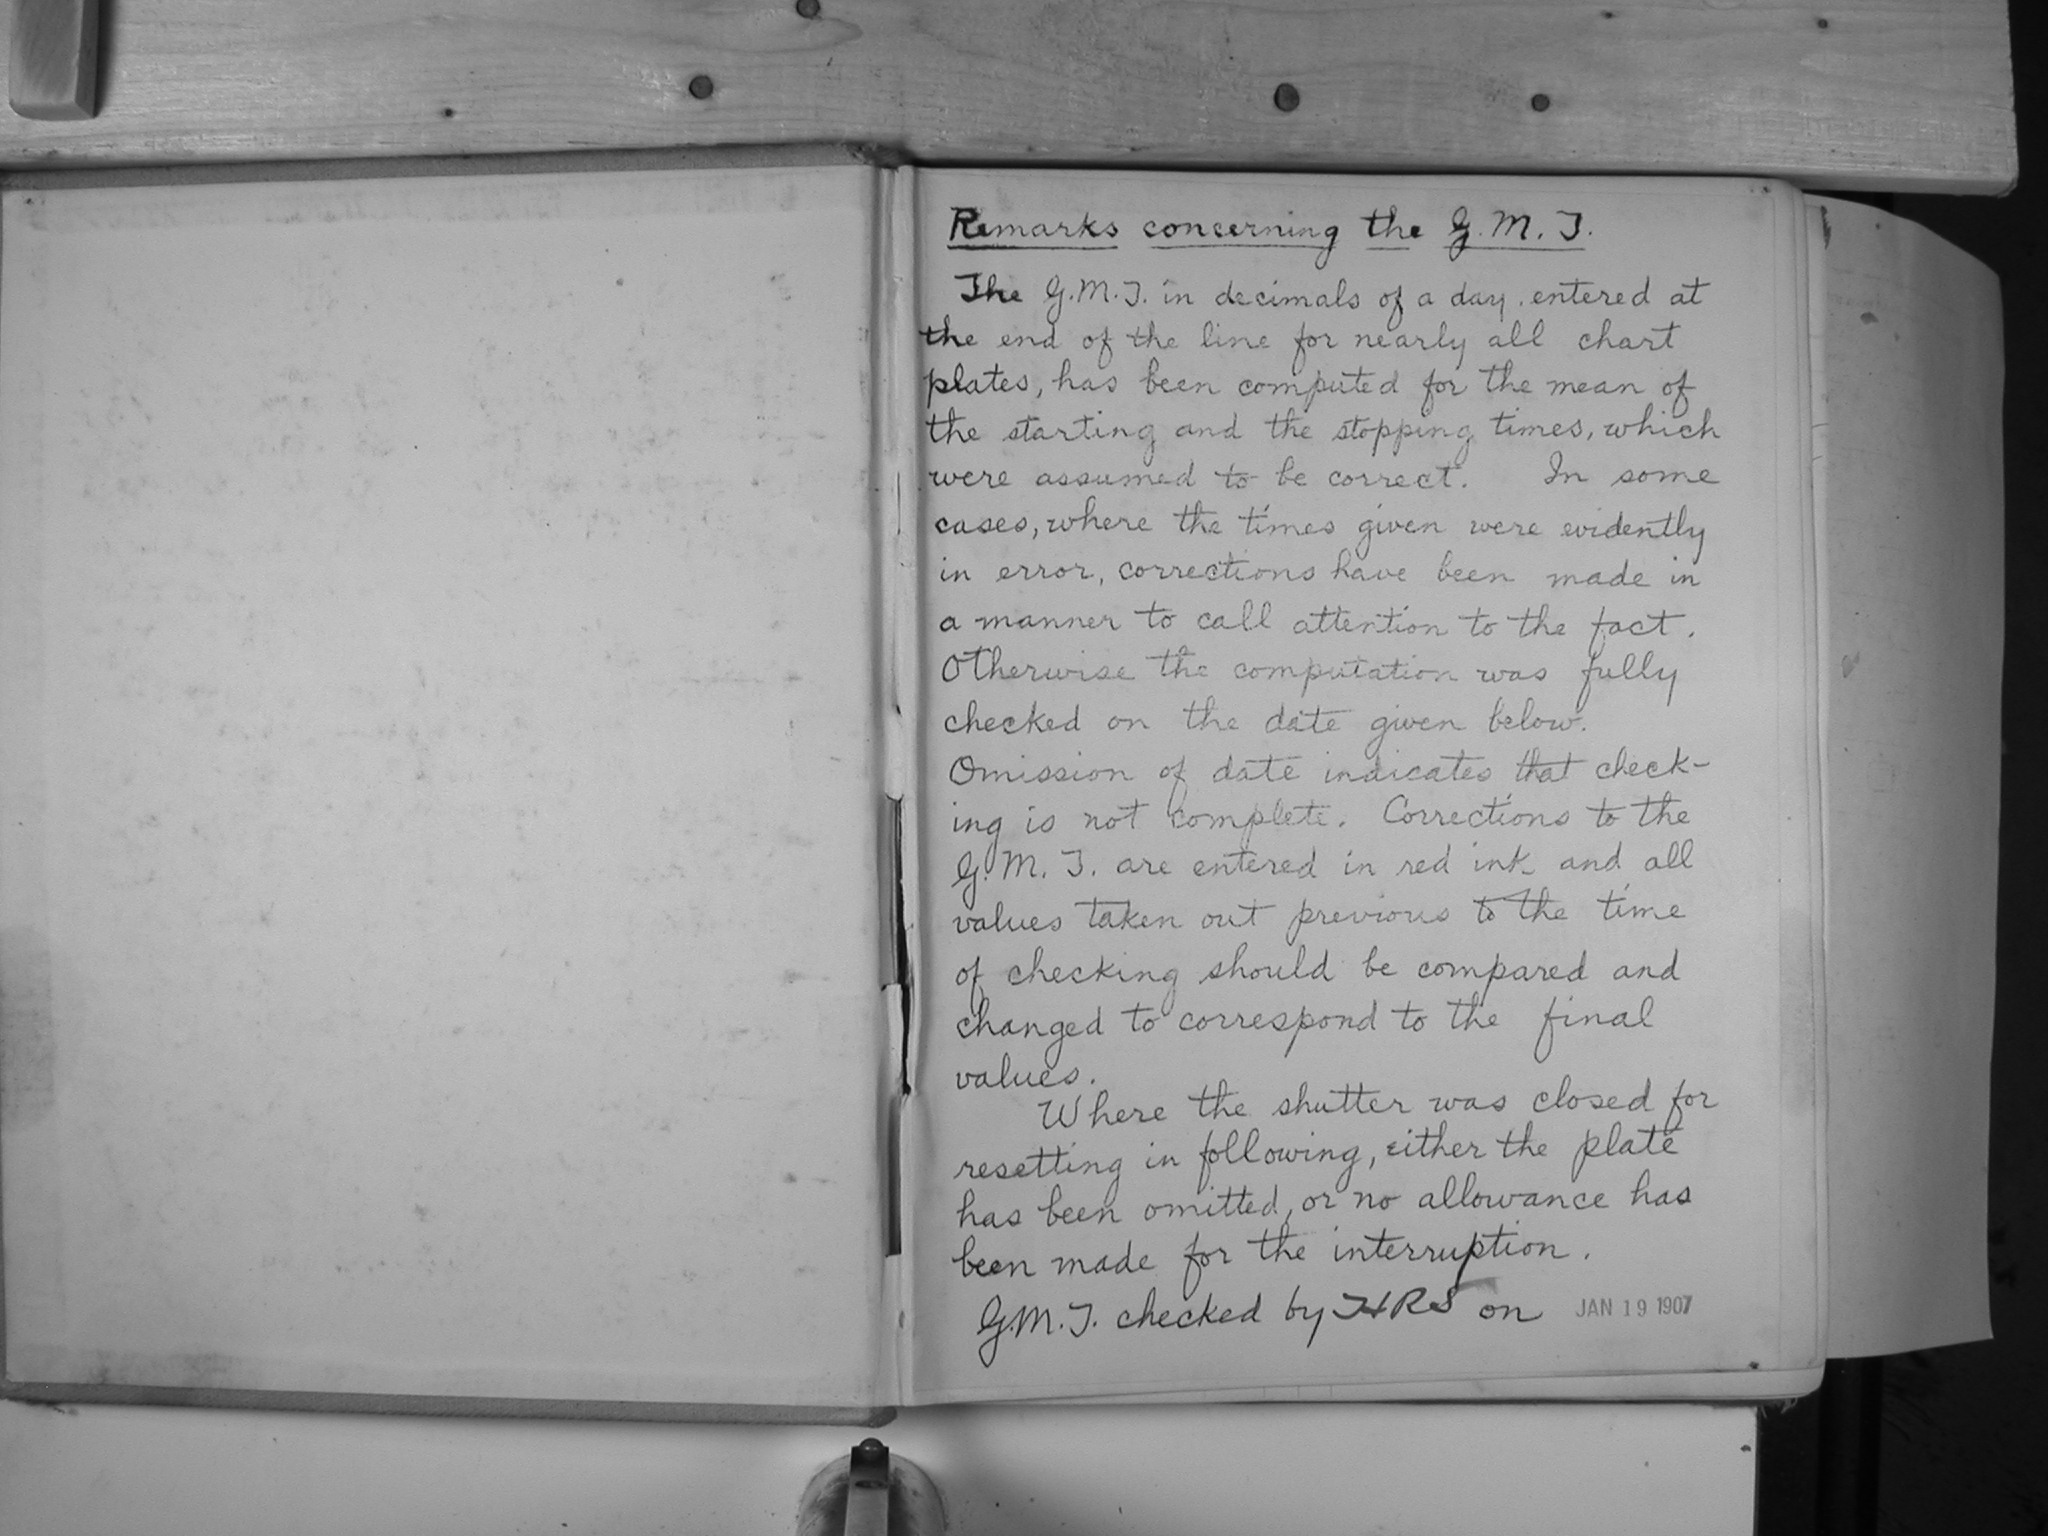 Remarks concerning the G.M.T.
The G.M.T. in decimals of a day, entered at
the end of the line for nearly all chart
plates, has been computed for the mean of
the starting and the stopping times, which
were assumed to be correct. In some
cases, where the times given were evidently
in error, corrections have been made in
a manner to call attention to the fact.
Otherwise the computation was fully
checked on the date given below.
Omission of date indicates that check-
ing is not complete. Corrections to the
G.M.T. are entered in red ink and all
values taken out previous to the time
of checking should be compared and
changed to correspond to the final
values.
Where the shutter was closed for
resetting in following, either the plate
has been omitted, or no allowance has
been made for the interruption.
G.M.T. checked by HRS on JAN 19 1907